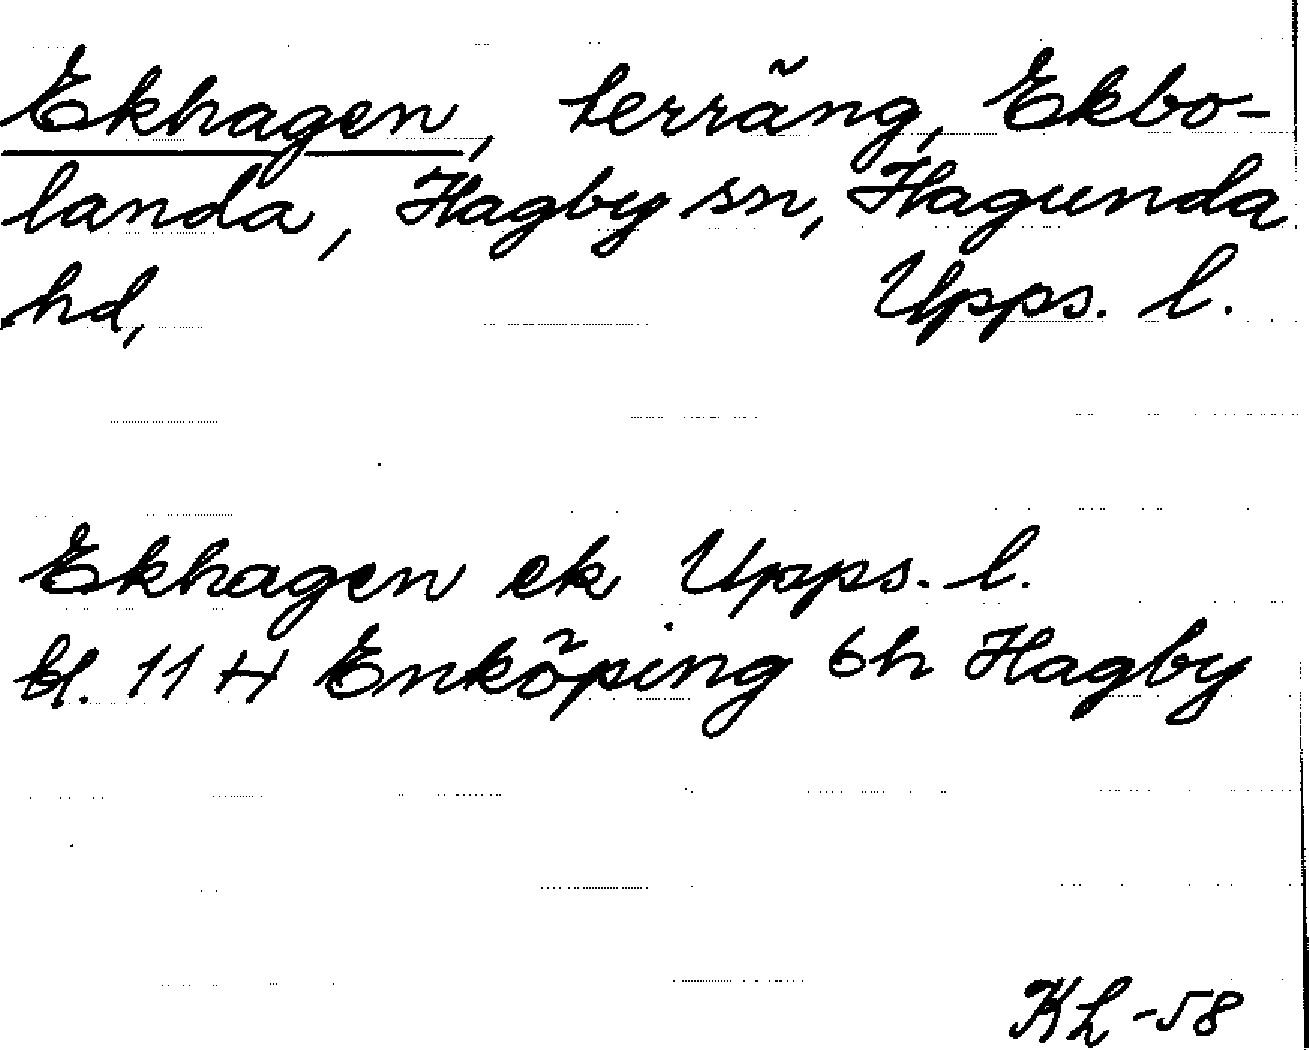 Ekhagen, terräng, Ekbo-
landa, Hagby sn, Hagunda
hd, Upps. l.
Ekhagen ek Upps. l.
bl. 11 H Enköping 6h Hagby
KL -58